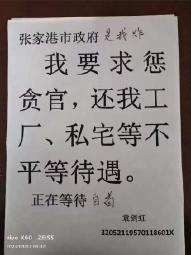 张家港市政府是我炸
我要求惩
贪官，还我工
厂、私宅等不
平等待遇。
正在等待自首
袁剑红
32052119570118601X